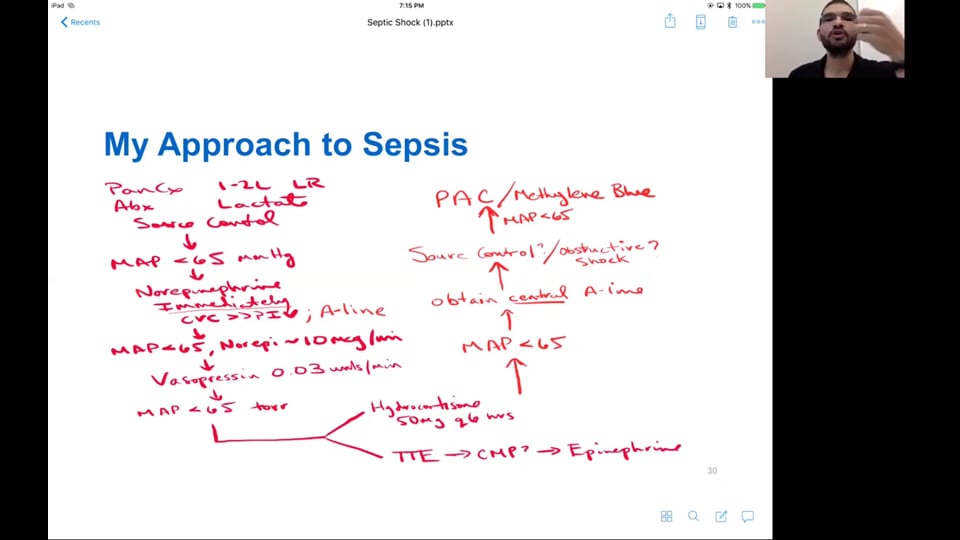 iPad
7:15 PM
100%
Recents
Septic Shock (1).pptx
My Approach to Sepsis
PanCx 1-2L LR
Abx Lactate
Source Control
MAP <65 mmHg
Norepinephrine
Immediately
CVC >>> PIV ; A-line
MAP<65, Norepi ~10mcg/min
Vasopressin 0.03 units/min
MAP <65 torr
Hydrocortisone
50mg q6 hrs
TTE → CMP? → Epinephrine
MAP <65
obtain central A-line
Source Control?/obstructive?
shock
MAP<65
PAC/Methylene Blue
30